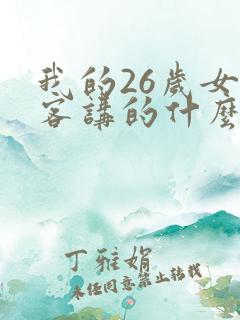 我的26歲女
客講的什麼
丁雅娟
未经同意禁止转载